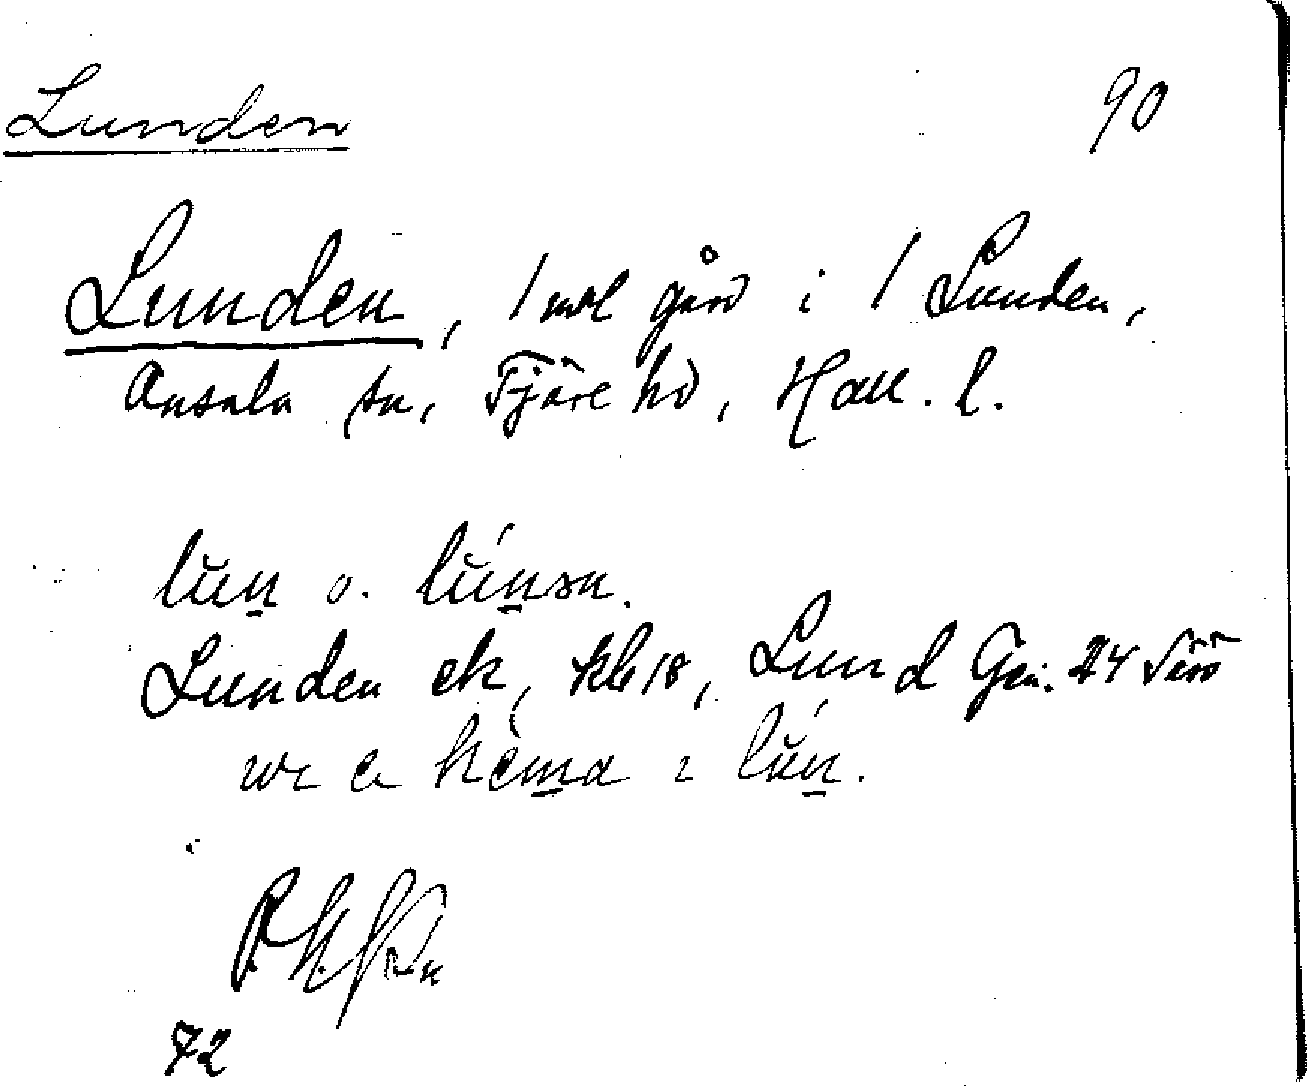 Lunden 90
Lunden, 1 mtl gård i 1 Lunden,
Onsala sn, Fjäre hd, Hall. l.
lŭn o. lŭ́nsn.
Lunden ek, kb 18, Lund Gen. 24
wɩ e hema ɩ lŭ́n.
72